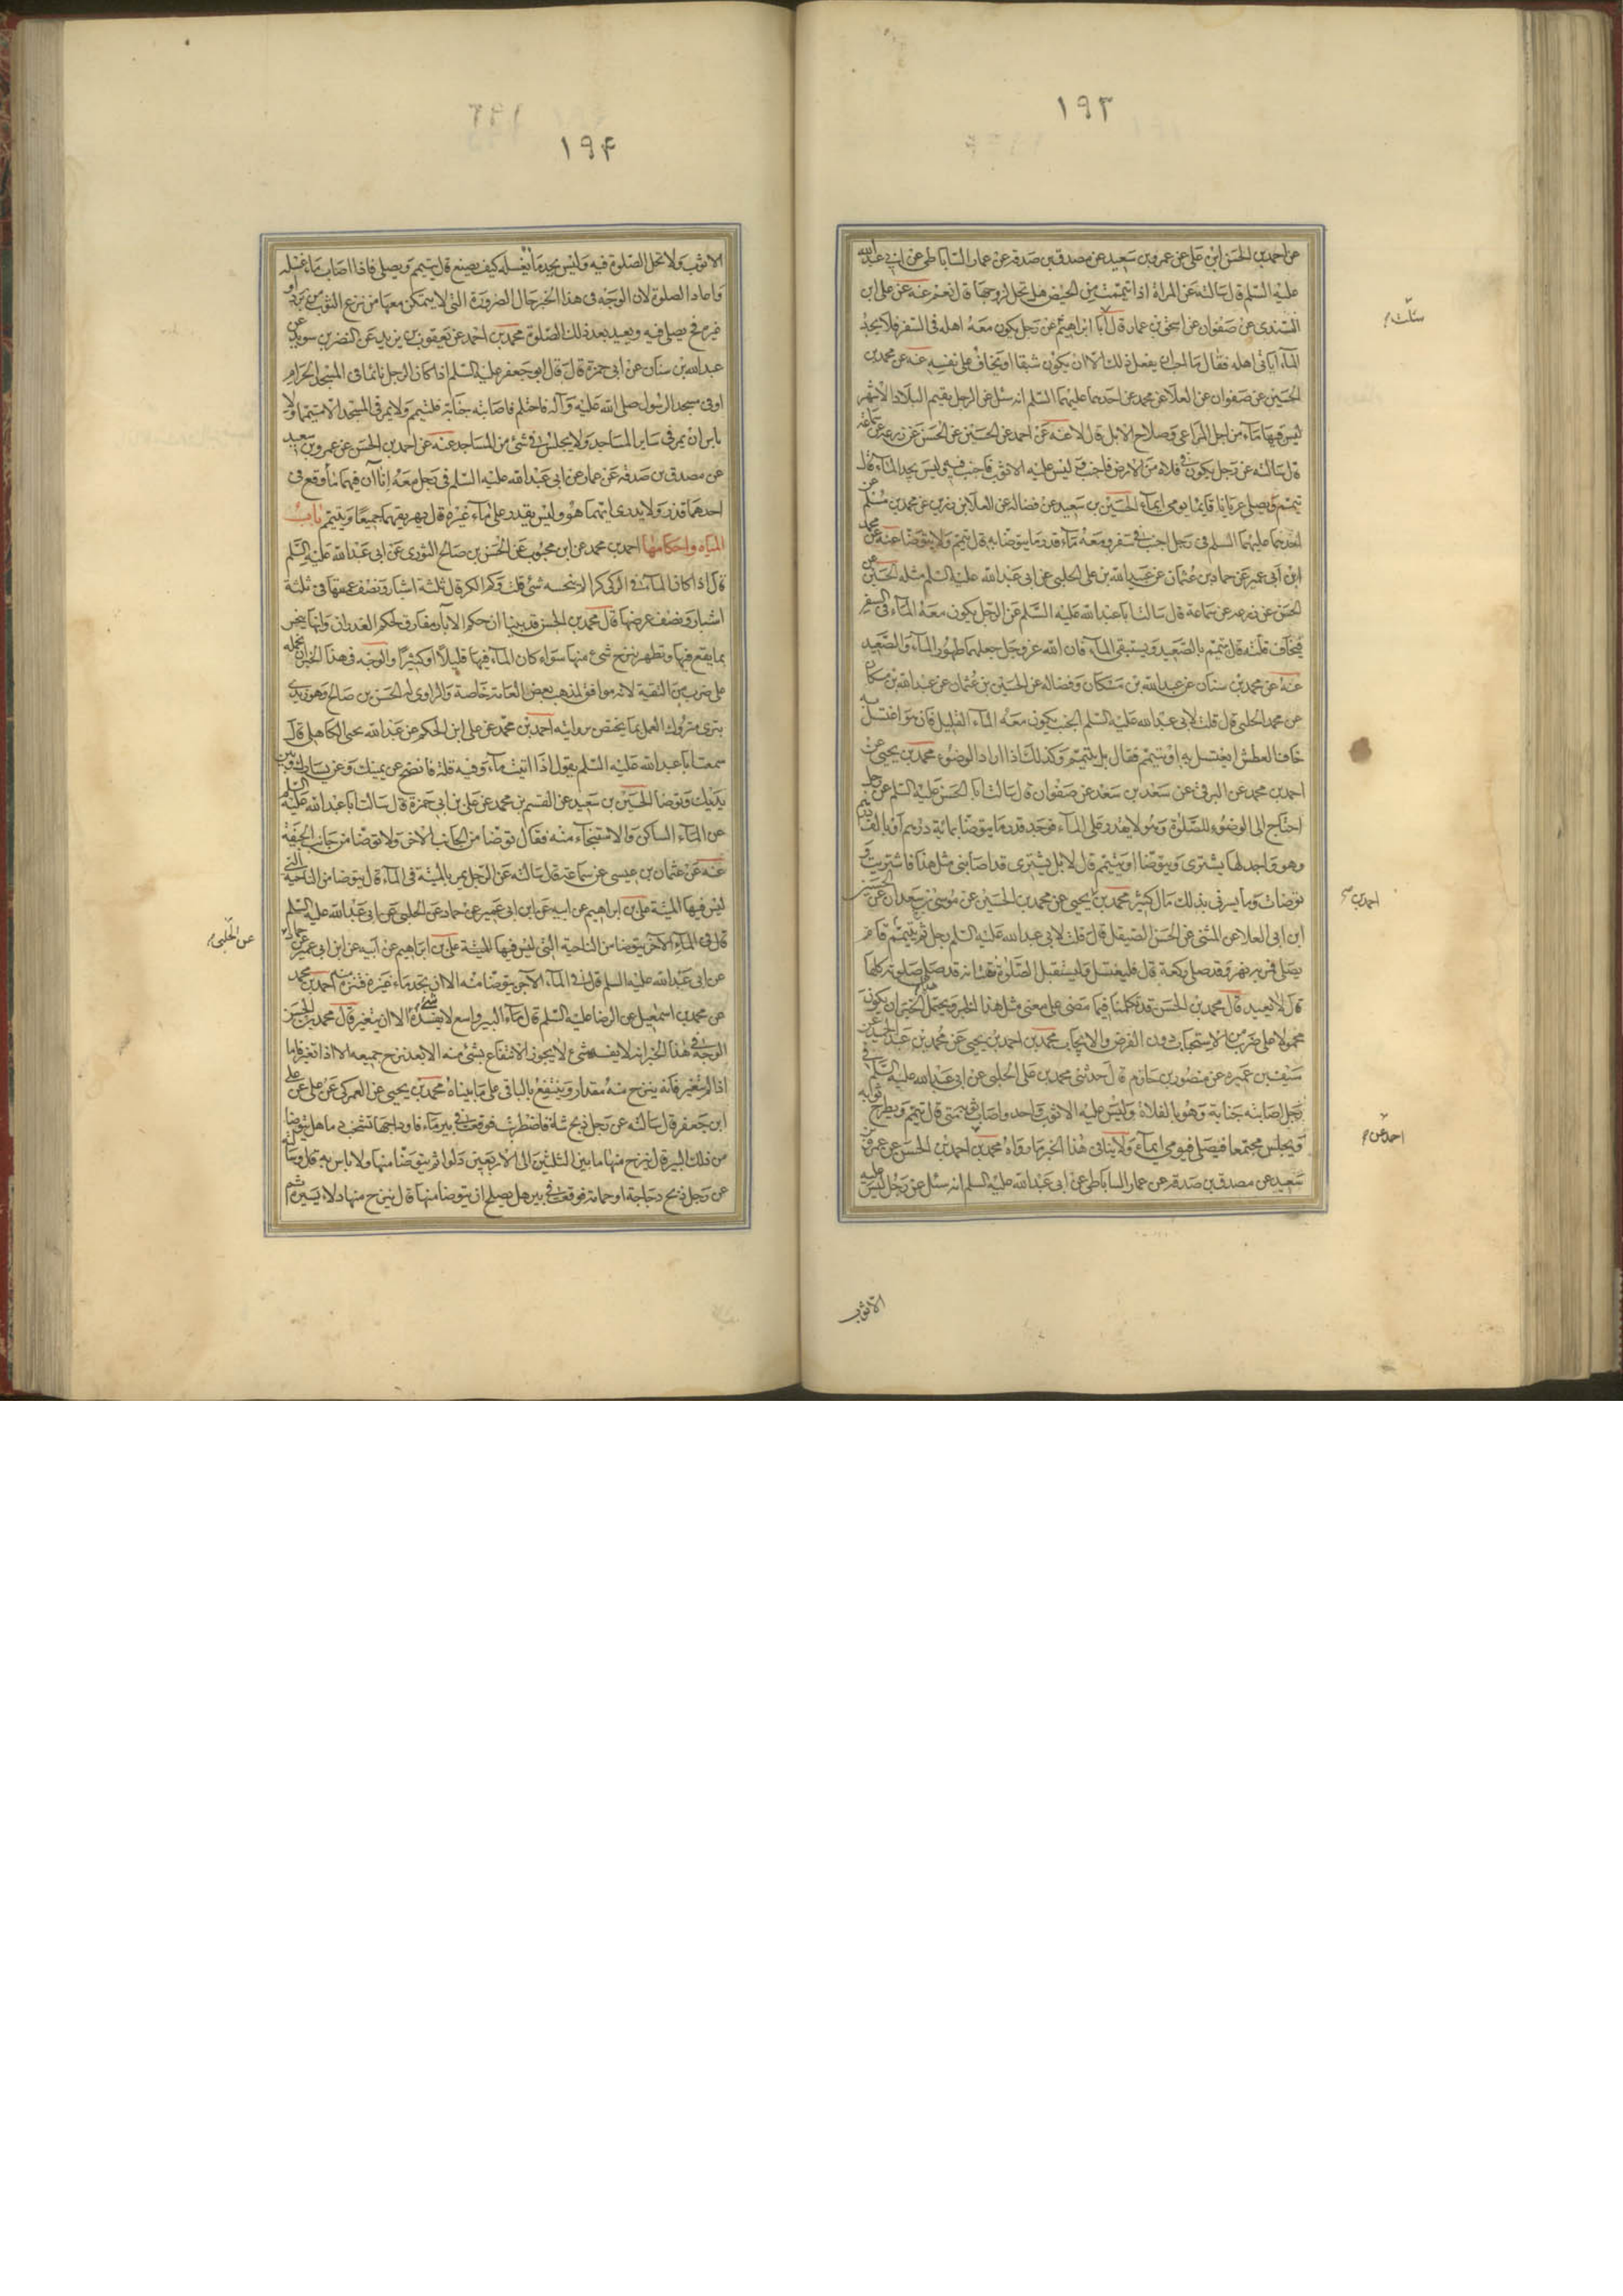 ١٩٣
عن احمد بن الحسن ابن على عن عمرو بن سعيد عن مصدق بن صدقة عن عمار الساباطى عن ابى عبد الله
عليه السلم قال سالته عن المراة اذا تيممت من الحيض هل تحل لزوجها قال نعم عنه عن على ابن
السندى عن صفوان عن اسحق بن عمار قال ابا ابراهيم عن رجل يكون معه اهله فى السفر فلا يجد
سالت
الماء اياتى اهله فقال ما احب ان يفعل ذلك الا ان يكون شبقا او يخاف على نفسه عنه عن محمد بن
الحسين عن صفوان عن العلا عن محمد عن احدهما عليهما السلم انه سئل عن الرجل يقيم البلاد الاشهر
ليس فيها ماء من اجل المراعى وصلاح الابل قال لا عنه عن احمد عن الحسين عن الحسن عن زرعة عن سماعة
قال سالته عن رجل يكون فى فلاة من الارض فاجنب وليس عليه الا ثوب فاجنب فيه وليس يجد الماء قال
يتيمم ويصلى عريانا قائما يومى ايماء الحسين بن سعيد عن فضالة عن العلا بن رزين عن محمد بن مسلم عن
احدهما عليهما السلم فى رجل اجنب فى سفر ومعه ماء قدر ما يتوضا به قال يتيمم ولا يتوضا عنه عن محمد
ابن ابى عمير عن حماد بن عثمان عن عبيد الله بن على الحلبى عن ابى عبد الله عليه السلم مثله الحسين عن
الحسن عن زرعة عن سماعة قال سالت ابا عبد الله عليه السلم عن الرجل يكون معه الماء فى السفر
فيخاف قلته قال يتيمم بالصعيد ويستبقى الماء فان الله عز وجل جعلهما طهورا الماء والصعيد
عنه عن محمد بن سنان عن عبد الله بن مسكان وفضالة عن الحسين بن عثمان عن عبد الله بن مسكان
عن محمد الحلبى قال قلت لابى عبد الله عليه السلم الجنب يكون معه الماء القليل فان هو اغتسل به
خاف العطش ايغتسل به او يتيمم فقال بل يتيمم وكذلك اذا اراد الوضوء محمد بن يحيى عن
احمد بن محمد عن البرقى عن سعد بن سعد عن صفوان قال سالت ابا الحسن عليه السلم عن رجل
احتاج الى الوضوء للصلوة وهو لا يقدر على الماء فوجد قدر ما يتوضا بمائة درهم او بالف درهم
وهو واجد لها يشترى ويتوضا او يتيمم قال لا بل يشترى قد اصابنى مثل هذا فاشتريت و
توضات وما يسرنى بذلك مال كثير محمد بن يحيى عن محمد بن الحسين عن موسى بن سعدان عن الحسين
احمد بن
ابن ابى العلا عن المثنى عن الحسن الصيقل قال قلت لابى عبد الله عليه السلم رجل تيمم ثم قام
يصلى فمر به نهر وقد صلى ركعة قال فليغتسل وليستقبل الصلوة فقلت انه قد صلى صلوته كلها
قال لا يعيد قال محمد بن الحسن قد تكلمنا فيما مضى على معنى مثل هذا الخبر ويحتمل هذا الخبر ان يكون
محمولا على ضرب من الاستحباب دون الفرض والايجاب محمد بن احمد بن يحيى عن محمد بن عبد الحميد عن
سيف بن عميرة عن منصور بن حازم قال حدثنى محمد بن على الحلبى عن ابى عبد الله عليه السلم فى
رجل اصابته جنابة وهو بالفلاة وليس عليه الا ثوب واحد واصاب ثوبه منى قال يتيمم ويطرح ثوبه
ويجلس مجتمعا فيصلى فيومى ايماء ولا ينافى هذا الخبر ما رواه محمد بن احمد بن الحسن عن عمرو بن
احمد عن
سعيد عن مصدق بن صدقة عن عمار الساباطى عن ابى عبد الله عليه السلم انه سئل عن رجل ليس عليه
الا ثوب
١٩۴
الا ثوب ولا تحل الصلوة فيه وليس يجد ماء يغسله كيف يصنع قال يتيمم ويصلى فاذا اصاب ماء غسله
واعاد الصلوة لان الوجه فى هذا الخبر حال الضرورة التى لا يتمكن معها من نزع الثوب من برد او
غيره فح يصلى فيه ويعيد بعد ذلك الصلوة محمد بن احمد عن يعقوب بن يزيد عن النضر بن سويد عن
عبد الله بن سنان عن ابى حمزة قال قال ابو جعفر عليه السلم اذا كان الرجل نائما فى المسجد الحرام
او فى مسجد الرسول صلى الله عليه وآله فاحتلم فاصابته جنابة فليتيمم ولا يمر فى المسجد الا متيمما ولا
باس ان يمر فى ساير المساجد ولا يجلس فى شئ من المساجد عنه عن احمد بن الحسن عن عمرو بن سعيد
عن مصدق بن صدقة عن عمار عن ابى عبد الله عليه السلم فى رجل معه اناآن فيهما ماء وقع فى
احدهما قذر ولا يدرى ايهما هو وليس يقدر على ماء غيره قال يهريقهما جميعا ويتيمم باب
المياه واحكامها احمد بن محمد عن ابن محبوب عن الحسن بن صالح الثورى عن ابى عبد الله عليه السلم
قال اذا كان الماء فى الركى كرا لم ينجسه شئ قلت وكم الكر قال ثلثة اشبار ونصف عمقها فى ثلثة
اشبار ونصف عرضها قال محمد بن الحسن قد بينا ان حكم الآبار مفارق لحكم الغدران وانها ينجس
بما يقع فيها وتطهر بنزح شئ منها سواء كان الماء فيها قليلا او كثيرا والوجه فى هذا الخبر ان نحمله
على ضرب من التقية لانه موافق لمذهب بعض العامة خاصة والراوى له الحسن بن صالح وهو زيدى
بترى متروك العمل بما يختص بروايته احمد بن محمد عن على ابن الحكم عن عبد الله يحيى الكاهلى قال
سمعت ابا عبد الله عليه السلم يقول اذا اتيت ماء وفيه قلة فانضح عن يمينك وعن يسارك وبين
يديك وتوضا الحسين بن سعيد عن القسم بن محمد عن على بن ابى حمزة قال سالت ابا عبد الله عليه السلم
عن الماء الساكن والاستنجاء منه فقال توضا من الجانب الاخر ولا توضا من جانب الجيفة
عنه عن عثمان بن عيسى عن سماعة قال سالته عن الرجل يمر بالميتة فى الماء قال يتوضا من الناحية التى
ليس فيها الميتة على بن ابراهيم عن ابيه عن ابن ابى عمير عن حماد عن الحلبى عن ابى عبد الله عليه السلم
قال فى الماء الآجن يتوضا من الناحية التى ليس فيها الميتة على بن ابراهيم عن ابيه عن ابن ابى عمير عن حماد
عن الحلبى
عن ابى عبد الله عليه السلم قال فى الماء الآجن يتوضا منه الا ان تجد ماء غيره فتنزه منه احمد بن محمد
عن محمد بن اسمعيل عن الرضا عليه السلم قال ماء البير واسع لا يفسده شئ الا ان يتغير قال محمد بن الحسن
الوجه فى هذا الخبر انه لا يفسده شئ لا يجوز الانتفاع بشئ منه الا بعد نزح جميعه الا اذا تغير فاما
اذا لم يتغير فانه ينزح منه مقدار وينتفع بالباقى على ما بيناه محمد بن يحيى عن العمركى عن على عن على
ابن جعفر قال سالته عن رجل ذبح شاة فاضطربت فوقعت فى بير ماء واوداجها تشخب دما هل يتوضا
من ذلك البير قال ينزح منها ما بين الثلثين الى الاربعين دلوا ثم يتوضا منها ولا باس به قال وسالته
عن رجل ذبح دجاجة او حمامة فوقعت فى بير هل يصلح ان يتوضا منها قال ينزح منها دلاء يسيرة ثم